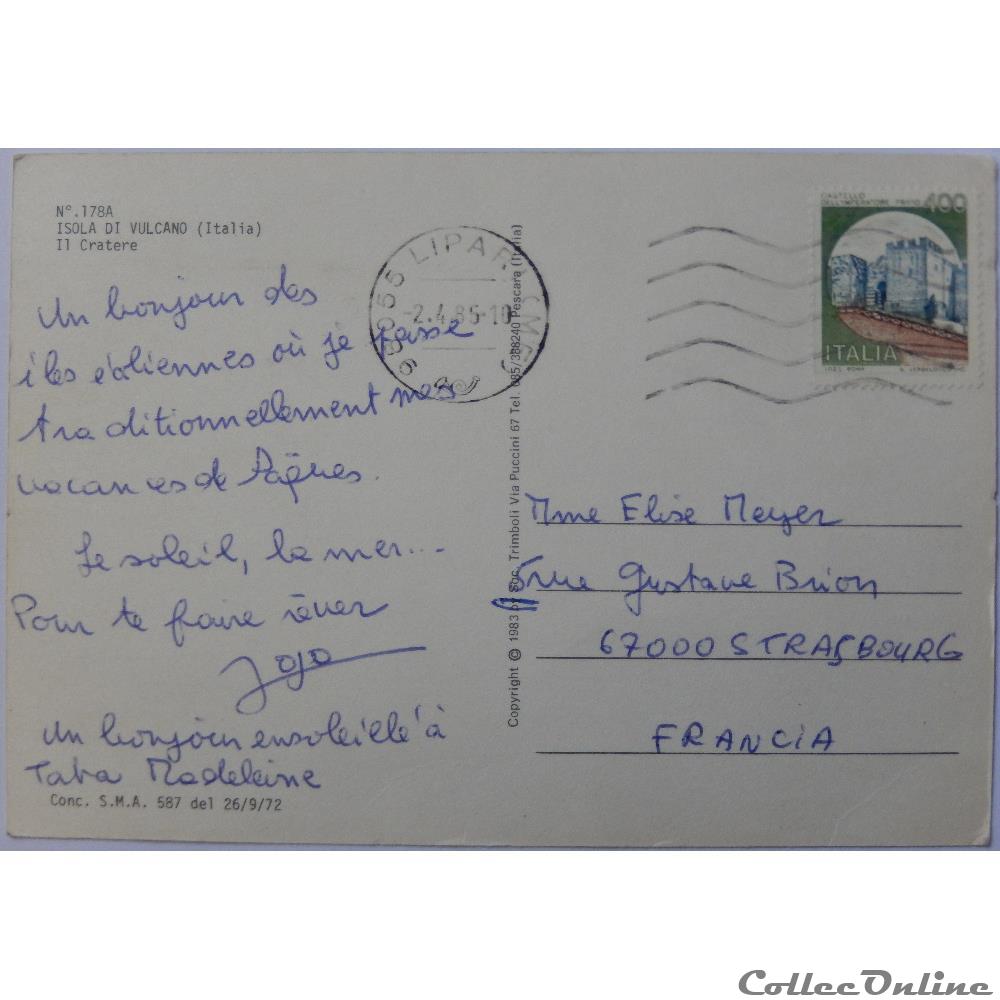 N°.178A
ISOLA DI VULCANO (Italia)
Il Cratere
Un bonjour des
îles éoliennes où je passe
traditionnellement mes
vacances de Pâques.
Le soleil, la mer...
Pour te faire rêver
Jojo
un bonjour ensoleillé à
Tata Madeleine
Conc. S.M.A. 587 del 26/9/72
98055 LIPARI (ME)
-2.4.85-10
Copyright © 1983 by Soc. Trimboli Via Puccini 67 Tel. 085/388240 Pescara (Italia)
CASTELLO
DELL'IMPERATORE PRATO 400
ITALIA
I.P.Z.S. ROMA
Mme Elise Meyer
5 rue Gustave Brion
67000 STRASBOURG
FRANCIA
CollecOnline